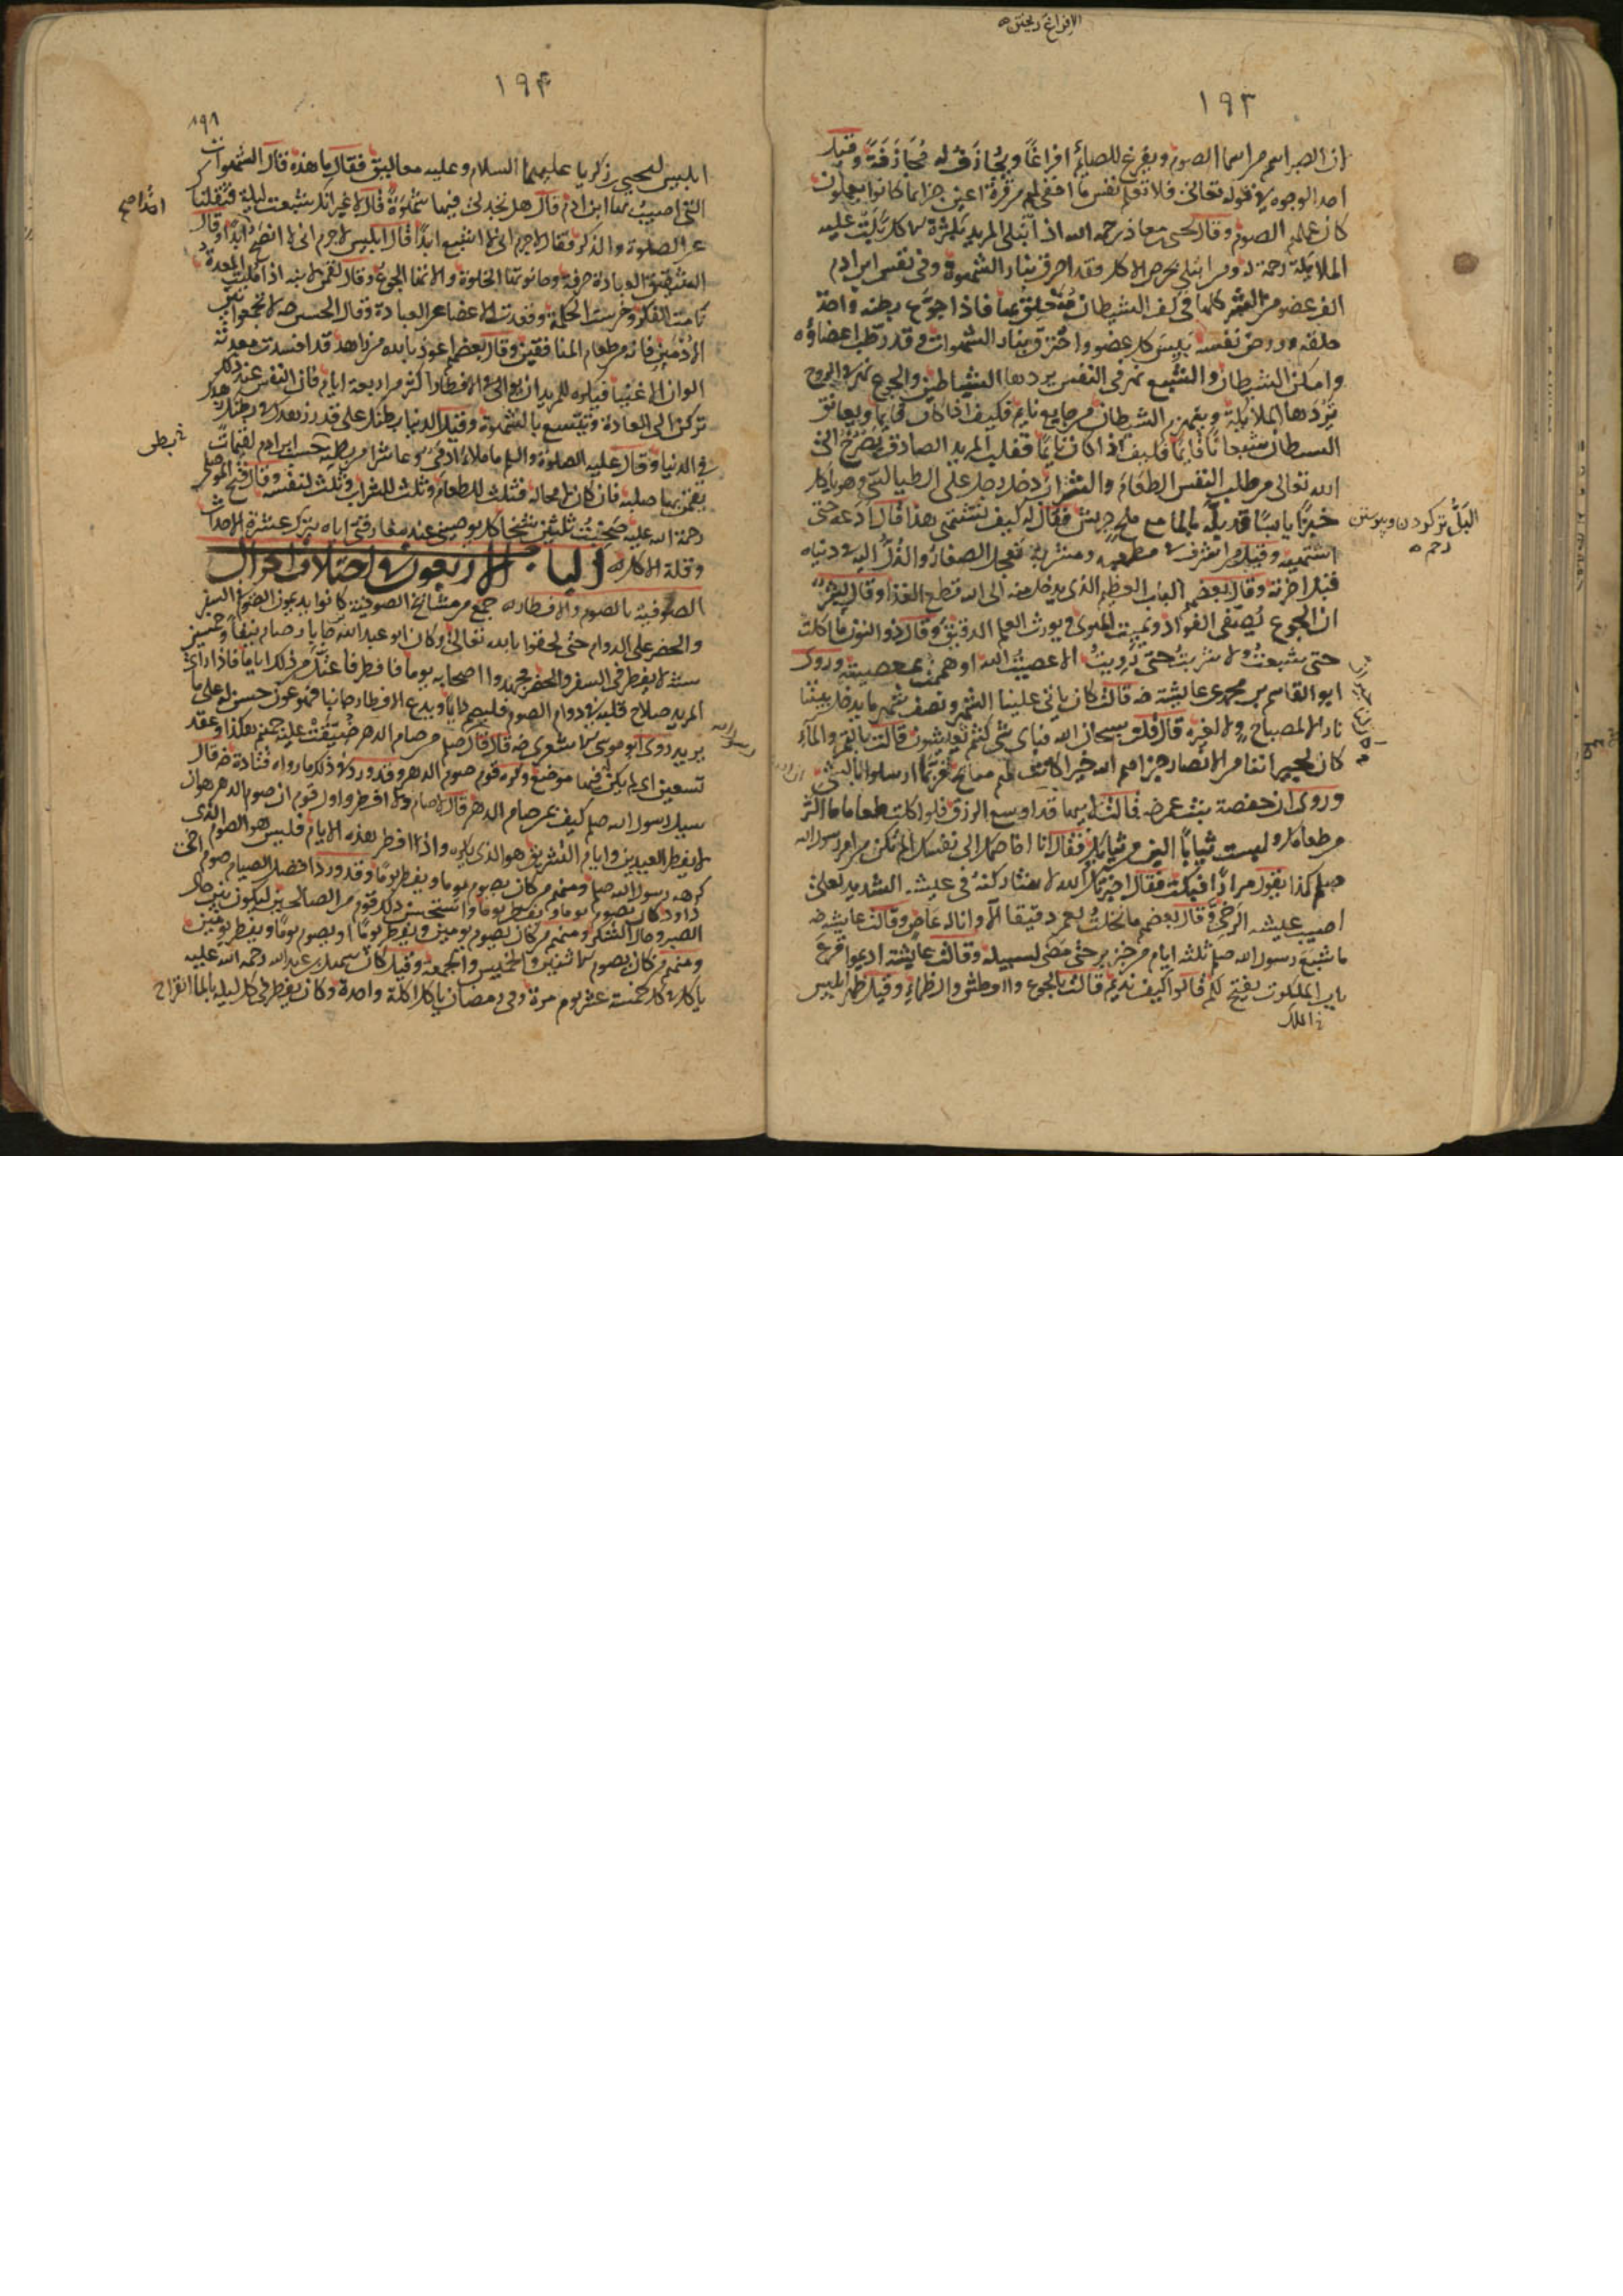 الافراغ ريختن
١٩٣
ان الصبر اسم من اسما الصوم ويفرغ للصائم افراغا ويجازف له مجازفة وقيل
احد الوجوه في قوله تعالى فلا تعلم نفس ما اخفى لهم من قرة اعين جزا بما كانوا يعملون
كان عملهم الصوم وقال يحيى بن معاذ رحمه الله اذا ابتلى المريد بكثرة الاكل بكت عليه
الملائكة رحمة له ومن ابتلي بحرص الاكل فقد احرق بنار الشهوة وفي نفس ابن ادم
الف عضو من الشر كلها في كف الشيطان متعلق بها فاذا جوع بطنه واخذ
حلقه وروض نفسه يبس كل عضو واحترق بنار الشهوات وقد رطب اعضاؤه
وامكن الشيطان والشبع نهر في النفس يردها الشياطين والجوع نهر في الروح
تردها الملائكة وينهزم الشيطان من جايع نايم فكيف اذا كان قايما ويعانق
الشيطان شبعانا قائما فكيف اذا كان نايما فقلب المريد الصادق يصرخ الى
الله تعالى من طلب النفس الطعام والشراب دخل رجل على الطيالسي وهو ياكل
خبزا يابسا قد بله بالما مع ملح جريش فقال له كيف تشتهي هذا قال ادعه حتى
اشتهيه وقيل من اسرف في مطعمه ومشربه تعجل الصغار والذل اليه في دنياه
قبل اخرته وقال بعضهم الباب العظيم الذي يدخل منه الى الله قطع الغذا وقال بشر
ان الجوع يصفي الفواد ويميت الهوى ويورث العلم الدقيق وقال ذو النون ما اكلت
حتى شبعت ولا شربت حتى رويت الا عصيت الله او هممت بمعصيته وروى
ابو القاسم بن محمد عن عايشة رضه قالت كان ياتي علينا الشهر ونصف شهر ما يدخل بيتنا
نار لا لمصباح ولا لغيره قال قلت سبحان الله فباي شي كنتم تعيشون قالت بالتمر والماء
كان لنا جيران من الانصار جزاهم الله خيرا كانت لهم منايح فربما ارسلوا لنا بشي
وروى ان حفصة بنت عمر رضه قالت لابيها قد اوسع الرزق فلو اكلت طعاما اكثر
من طعامك ولبست ثيابا الين من ثيابك فقال انا اخاصمك الى نفسك الم يكن من امر رسول الله
صلعم كذا يقول مرارا فبكت فقال اخبرتك والله لاشاركنه في عيشه الشديد لعلي
اصيب عيشه الرخي وقال بعضهم ما نخلت لعمر دقيقا الا وانا له عاص وقالت عايشة رضه
ما شبع رسول الله صلعم ثلثه ايام من خبز بر حتى مضى لسبيله وقالت عايشة اديموا قرع
باب الملكوت يفتح لكم قالوا كيف نديم قالت بالجوع والعطش والظماء وقيل ظهر ابليس
الملك
البل تر كردن وپيوستن
رحم
١٩٤
١٩١
ابليس ليحيى بن زكريا عليهما السلام وعليه معاليق فقال ما هذه قال الشهوات
التي اصيب بها ابن ادم قال هل تجد لي فيها شهوة قال لا غير انك شبعت ليلة فثقلناك
عن الصلوة والذكر فقال لا جرم اني لا اشبع ابدا قال ابليس لا جرم اني لا انصح ابدا وقال
الشقيق العبادة حرفة وحانوتها الخلوة والاتها الجوع وقال لقمن لابنه اذا ملئت المعدة
نامت الفكرة وخرست الحكمة وقعدت الاعضا عن العبادة وقال الحسن رضه لا تجمعوا بين
الادمين فانه من طعام المنافقين وقال بعضهم اعوذ بالله من زاهد قد افسدت معدته
الوان الاغنيا فيكره للمريد ان يوالي في الافطار اكثر من اربعة ايام فان النفس عند ذلك
تركن الى العادة وتتسع بالشهوة وقيل الدنيا بطنك على قدر زهدك في بطنك زهدك
في الدنيا وقال عليه الصلوة والسلم ما ملاء ادمي وعا شرا من بطنه حسب ابن ادم لقيمات
يقمن بها صلبه فان كان لا محالة فثلث للطعام وثلث للشراب وثلث لنفسه وقال فتح الموصلي
رحمة الله عليه صحبت ثلثين شيخا كل يوصيني عند مفارقتي اياه بترك عشرة الاحداث
وقلة الاكل الباب الاربعون في اختلاف احوال
الصوفية بالصوم والافطار جمع من مشايخ الصوفية كانوا يديمون الصوم في السفر
والحضر على الدوام حتى لحقوا بالله تعالى وكان ابو عبد الله بن جابار صام نيفا وخمسين
سنة لا يفطر في السفر والحضر فجهد به اصحابه يوما فافطر فاعتل من ذلك اياما فاذا راى
المريد صلاح قلبه في دوام الصوم فليصم دايما ويدع الافطار جانبا فهو عون حسن له على ما
يريد روى ابو موسى الاشعري رضه قال قال رسول الله صلعم من صام الدهر ضيقت عليه جهنم هكذا وعقد
تسعين اي لم يكن فيها موضع وكره قوم صوم الدهر وقد ورد في ذلك ما رواه قتادة رضه قال
سيل رسول الله صلعم كيف بمن صام الدهر قال لا صام ولا افطر واول قوم ان صوم الدهر هو ان
لا يفطر العيدين وايام التشريق هو الذي يكره واذا افطر هذه الايام فليس هو الصوم الذي
كرهه رسول الله صلعم ومنهم من كان يصوم يوما ويفطر يوما وقد ورد افضل الصيام صوم اخي
داود كان يصوم يوما ويفطر يوما واستحسن ذلك قوم من الصالحين ليكون بين حال
الصبر وحال الشكر ومنهم من كان يصوم يومين ويفطر يوما او يصوم يوما ويفطر يومين
ومنهم من كان يصوم الاثنين والخميس والجمعة وقيل كان سهل بن عبد الله رحمه الله عليه
ياكل في كل خمسة عشر يوم مرة وفي رمضان ياكل اكلة واحدة وكان يفطر في كل ليلة بالما القراح
رسول الله